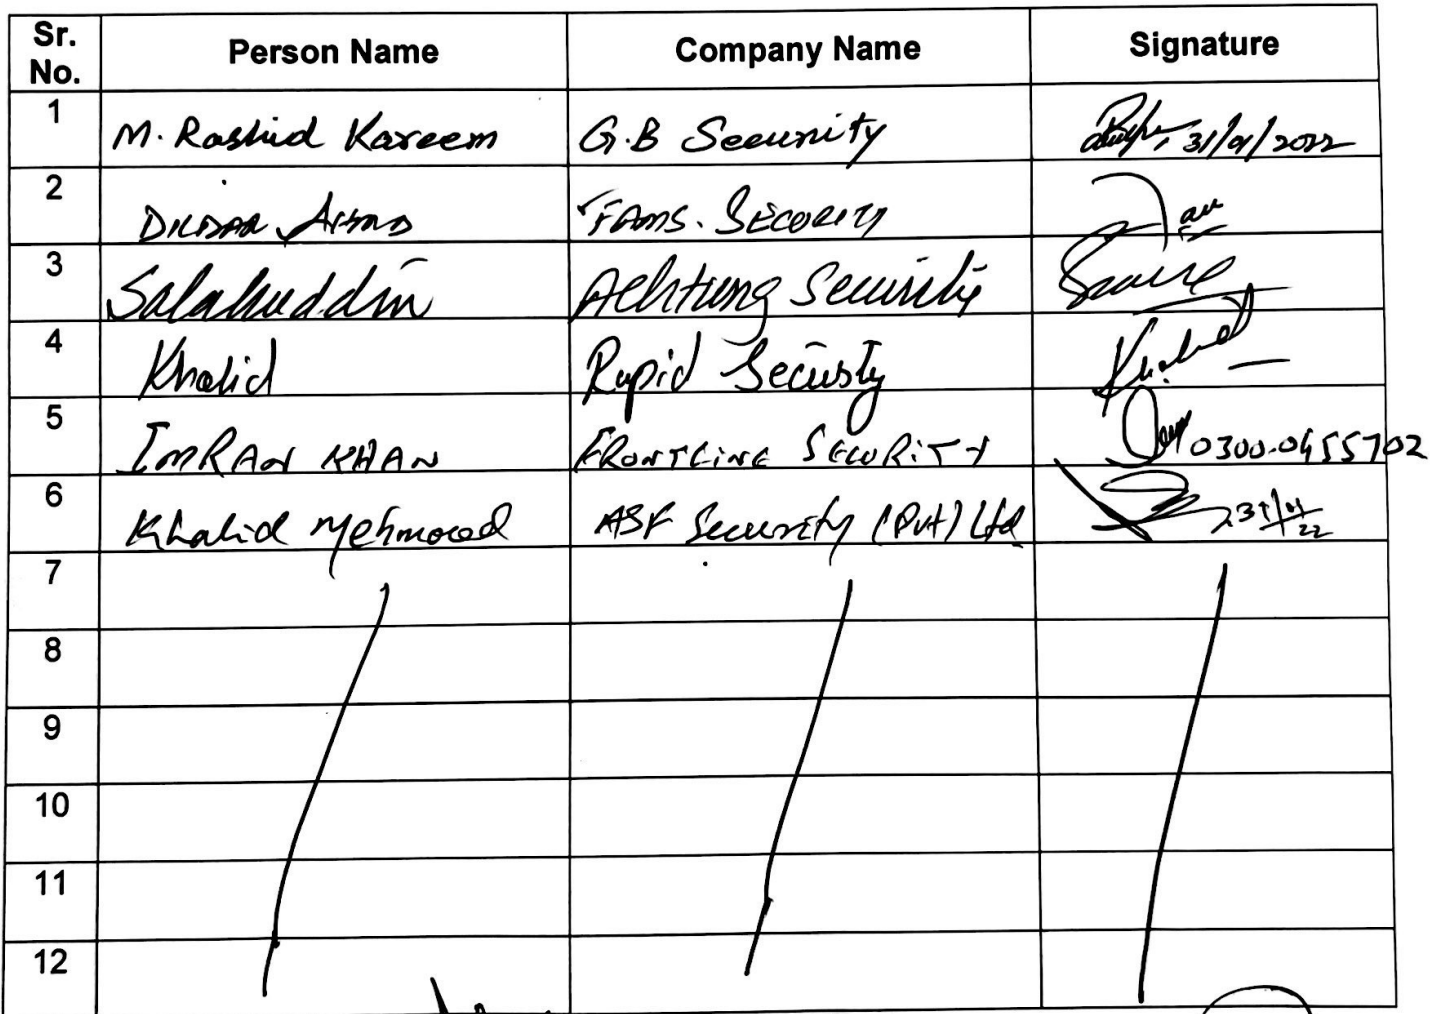 Sr. No. Person Name Company Name Signature
1 M. Rashid Kareem G.B Security 31/01/2022
2 DILDAR AHMAD FAMS. SECURITY
3 Salahuddin Achtung Security
4 Khalid Rapid Security Khalid
5 IMRAN KHAN FRONTLINE SECURITY 0300-0455702
6 Khalid Mehmood ASF Security (Pvt) Ltd 31/01/22
7
8
9
10
11
12